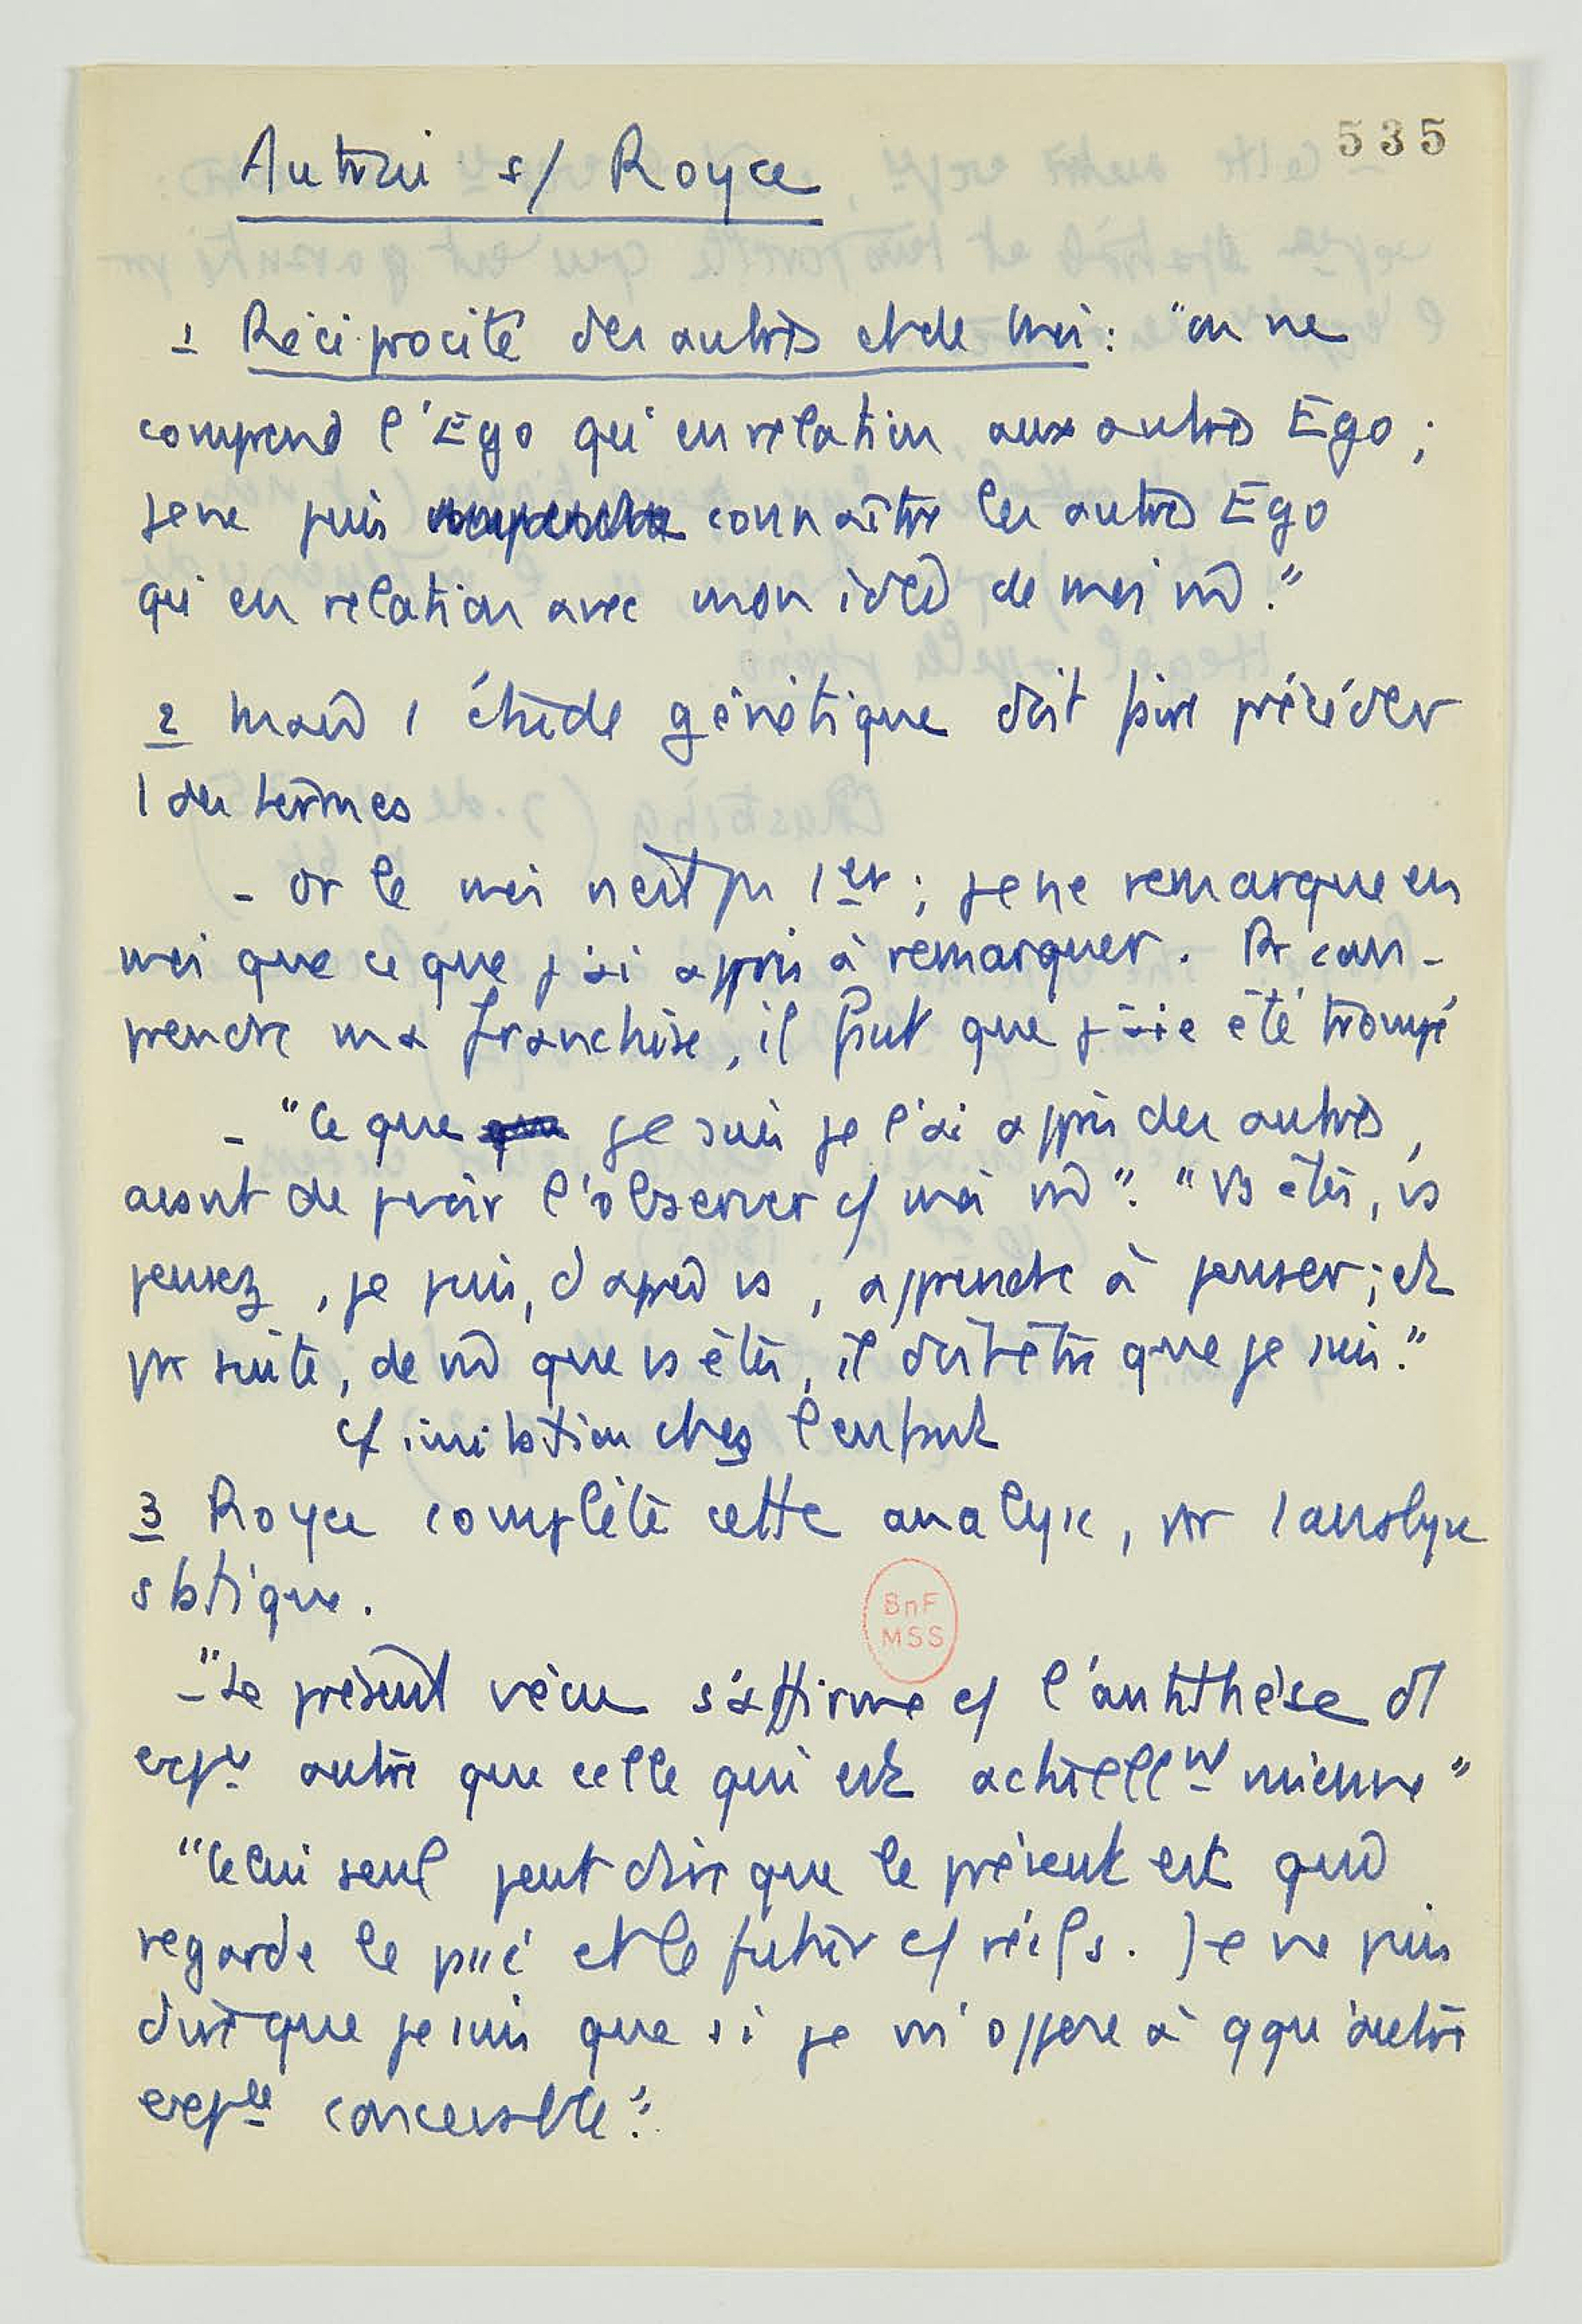 535
Autrui s/ Royce
1 Réciprocité des autres et de moi : "on ne
comprend l'Ego qu'en relation aux autres Ego ;
je ne puis connaître les autres Ego
qu'en relation avec mon idée de moi m̂."
2 Mais 1 étude génétique doit faire précéder
1 des termes
- Or le moi n'est pas 1er ; je ne remarque en
moi que ce que j'ai appris à remarquer. Pr com-
prendre ma franchise, il faut que j'aie été trompé
- "Ce que je suis je l'ai appris des autres,
avant de pvoir l'observer c/ moi m̂". "Vs êtes, vs
pensez, je puis, d'après vs, apprendre à penser ; et
par suite, de m̂ que vs êtes, il doit être que je suis."
cf imitation chez l'enfant
3 Royce complète cette analyse, par 1 analyse
statique.
- "Le présent vécu s'affirme c/ l'antithèse d'1
expce autre que celle qui est actuellmt mienne"
"Celui seul peut dire que le présent est qui
regarde le passé et le futur c/ réels. Je ne puis
dire que je suis que si je m'oppose à qqu'autre
expce concevable".
BnF
MSS